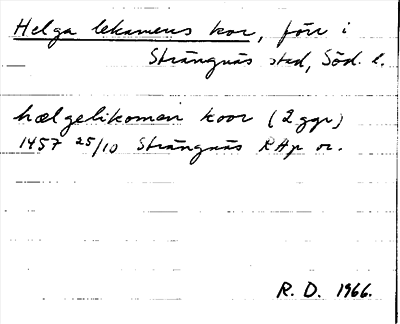 Helga lekamens kor, förr i
Strängnäs stad, Söd. l.
hælgelikomen koor (2 ggr)
1457 25/10 Strängnäs RAp or.
R. D. 1966.